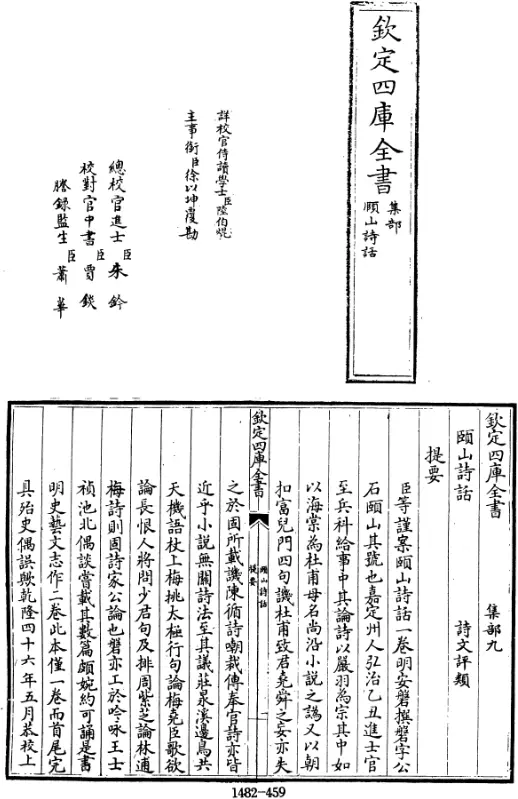 欽定四庫全書
集部
頤山詩話
詳校官侍讀學士臣陸伯焜
主事銜臣徐以坤覆勘
總校官進士臣朱鈐
校對官中書臣賈鋑
謄錄監生臣蕭華
欽定四庫全書
集部九
頤山詩話
詩文評類
提要
臣等謹案頤山詩話一卷明安磐撰磐字公
石頤山其號也嘉定州人弘治乙丑進士官
至兵科給事中其論詩以嚴羽為宗其中如
以海棠為杜甫母名尚沿小說之譌又以朝
扣富兒門四句譏杜甫致君堯舜之妄亦失
欽定四庫全書
頤山詩話
提要
之於固所載譏陳循詩嘲裁傳奉官詩亦皆
近乎小說無關詩法至其議莊㫤溪邊鳥共
天機語杖上梅挑太極行句論梅堯臣歌欲
論長恨人將問少君句及排周紫芝論林逋
梅詩則固詩家公論也磐亦工於吟咏王士
禎池北偶談嘗載其數篇頗婉約可誦是書
明史藝文志作二卷此本僅一卷而首尾完
具殆史偶誤歟乾隆四十六年五月恭校上
1482-459